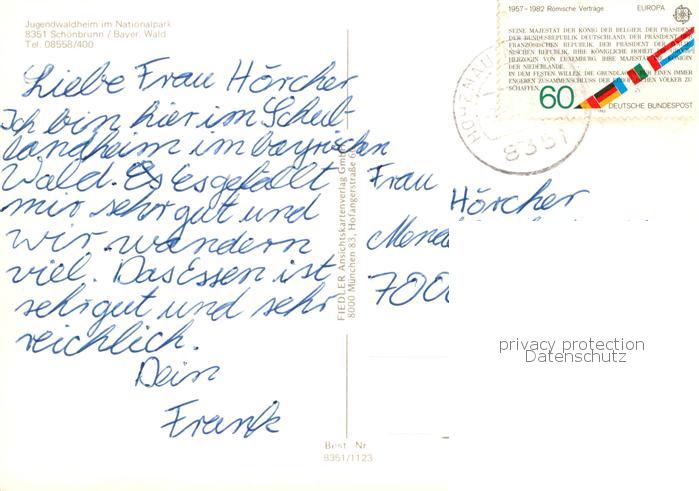 Jugendwaldheim im Nationalpark
8351 Schönbrunn / Bayer. Wald
Tel. 08558/400
Liebe Frau Hörcher
Ich bin hier im Schul-
landheim im bayrischen
Wald. Es esgefällt
mir sehr gut und
wir wandern
viel. Das Essen ist
sehr gut und sehr
reichlich.
Dein
Frank
Best. Nr.
8351/1123
FIEDLER Ansichtskartenverlag GmbH
8000 München 83, Hofangerstraße
1957-1982 Römische Verträge
EUROPA
SEINE MAJESTÄT DER KÖNIG DER BELGIER, DER PRÄSIDENT
DER BUNDESREPUBLIK DEUTSCHLAND, DER PRÄSIDENT DER
FRANZÖSISCHEN REPUBLIK, DER PRÄSIDENT DER ITALIE-
NISCHEN REPUBLIK, IHRE KÖNIGLICHE HOHEIT
HERZOGIN VON LUXEMBURG, IHRE MAJESTÄT
DER NIEDERLANDE,
IN DEM FESTEN WILLEN, DIE GRUNDLAGEN EINEN IMMER
ENGEREN ZUSAMMENSCHLUSS DER EUROPÄISCHEN VÖLKER ZU
SCHAFFEN
60
DEUTSCHE BUNDESPOST
HOHENAU
8351
Frau Hörcher
700
privacy protection
Datenschutz